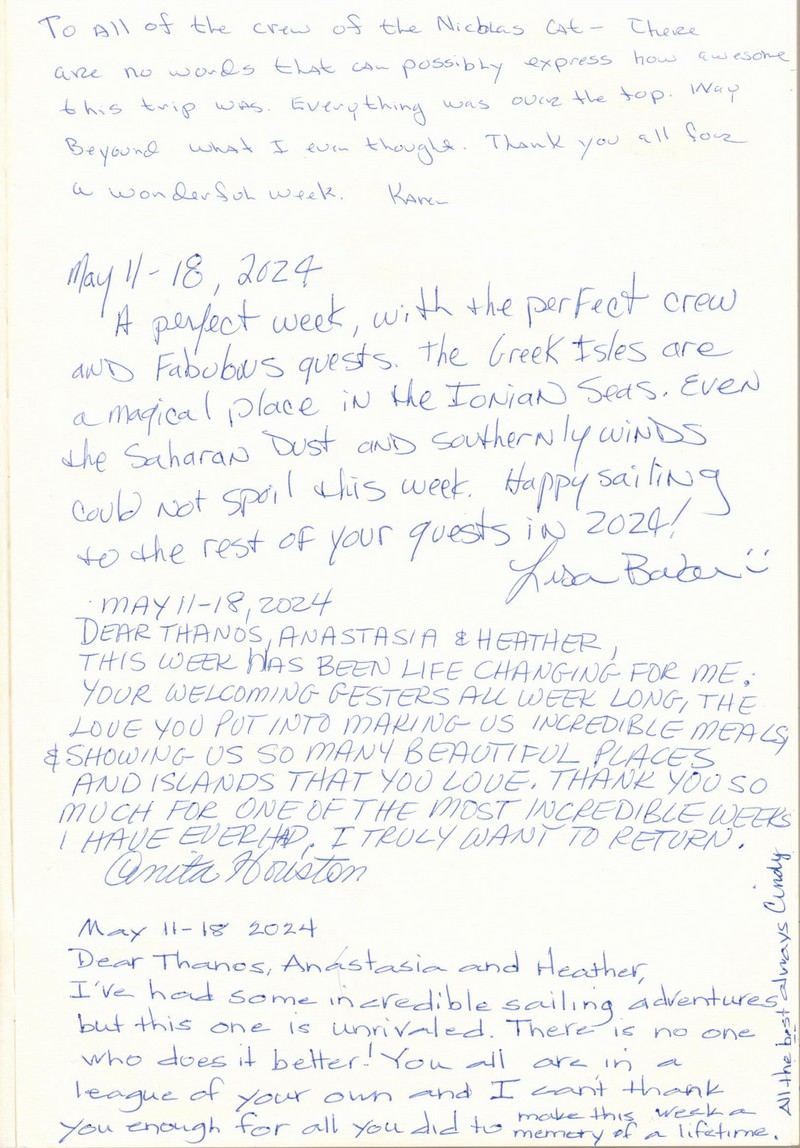 To All of the crew of the Nicolas Cat - There
are no words that can possibly express how awesome
this trip was. Everything was over the top. Way
Beyound what I even thought. Thank you all for
a wonderful week. Karen
May 11-18, 2024
A perfect week, with the perfect crew
and Fabulous guests. The Greek Isles are
a magical place in the Ionian Seas. Even
the Saharan Dust and southernly winds
could not spoil this week. Happy sailing
to the rest of your guests in 2024!
Lisa :)
MAY 11-18, 2024
DEAR THANOS, ANASTASIA & HEATHER,
THIS WEEK HAS BEEN LIFE CHANGING FOR ME.
YOUR WELCOMING GESTERS ALL WEEK LONG, THE
LOVE YOU PUT INTO MAKING US INCREDIBLE MEALS,
& SHOWING US SO MANY BEAUTIFUL PLACES
AND ISLANDS THAT YOU LOVE. THANK YOU SO
MUCH FOR ONE OF THE MOST INCREDIBLE WEEKS
I HAVE EVER HAD. I TRULY WANT TO RETURN.
Anita Houston
May 11-18 2024
Dear Thanos, Anastasia and Heather,
I've had some incredible sailing adventures
but this one is unrivaled. There is no one
who does it better! You all are in a
league of your own and I can't thank
you enough for all you did to make this week a
memory of a lifetime.
All the best always Cindy